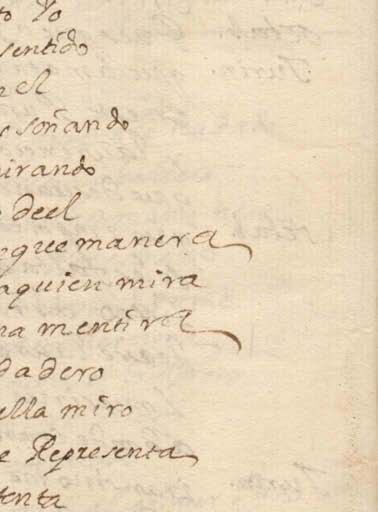 to Yo
sentido
el
soñando
mirando
deel
que manera
aquien mira
na mentira
dadero
ella miro
e Representa
tenta